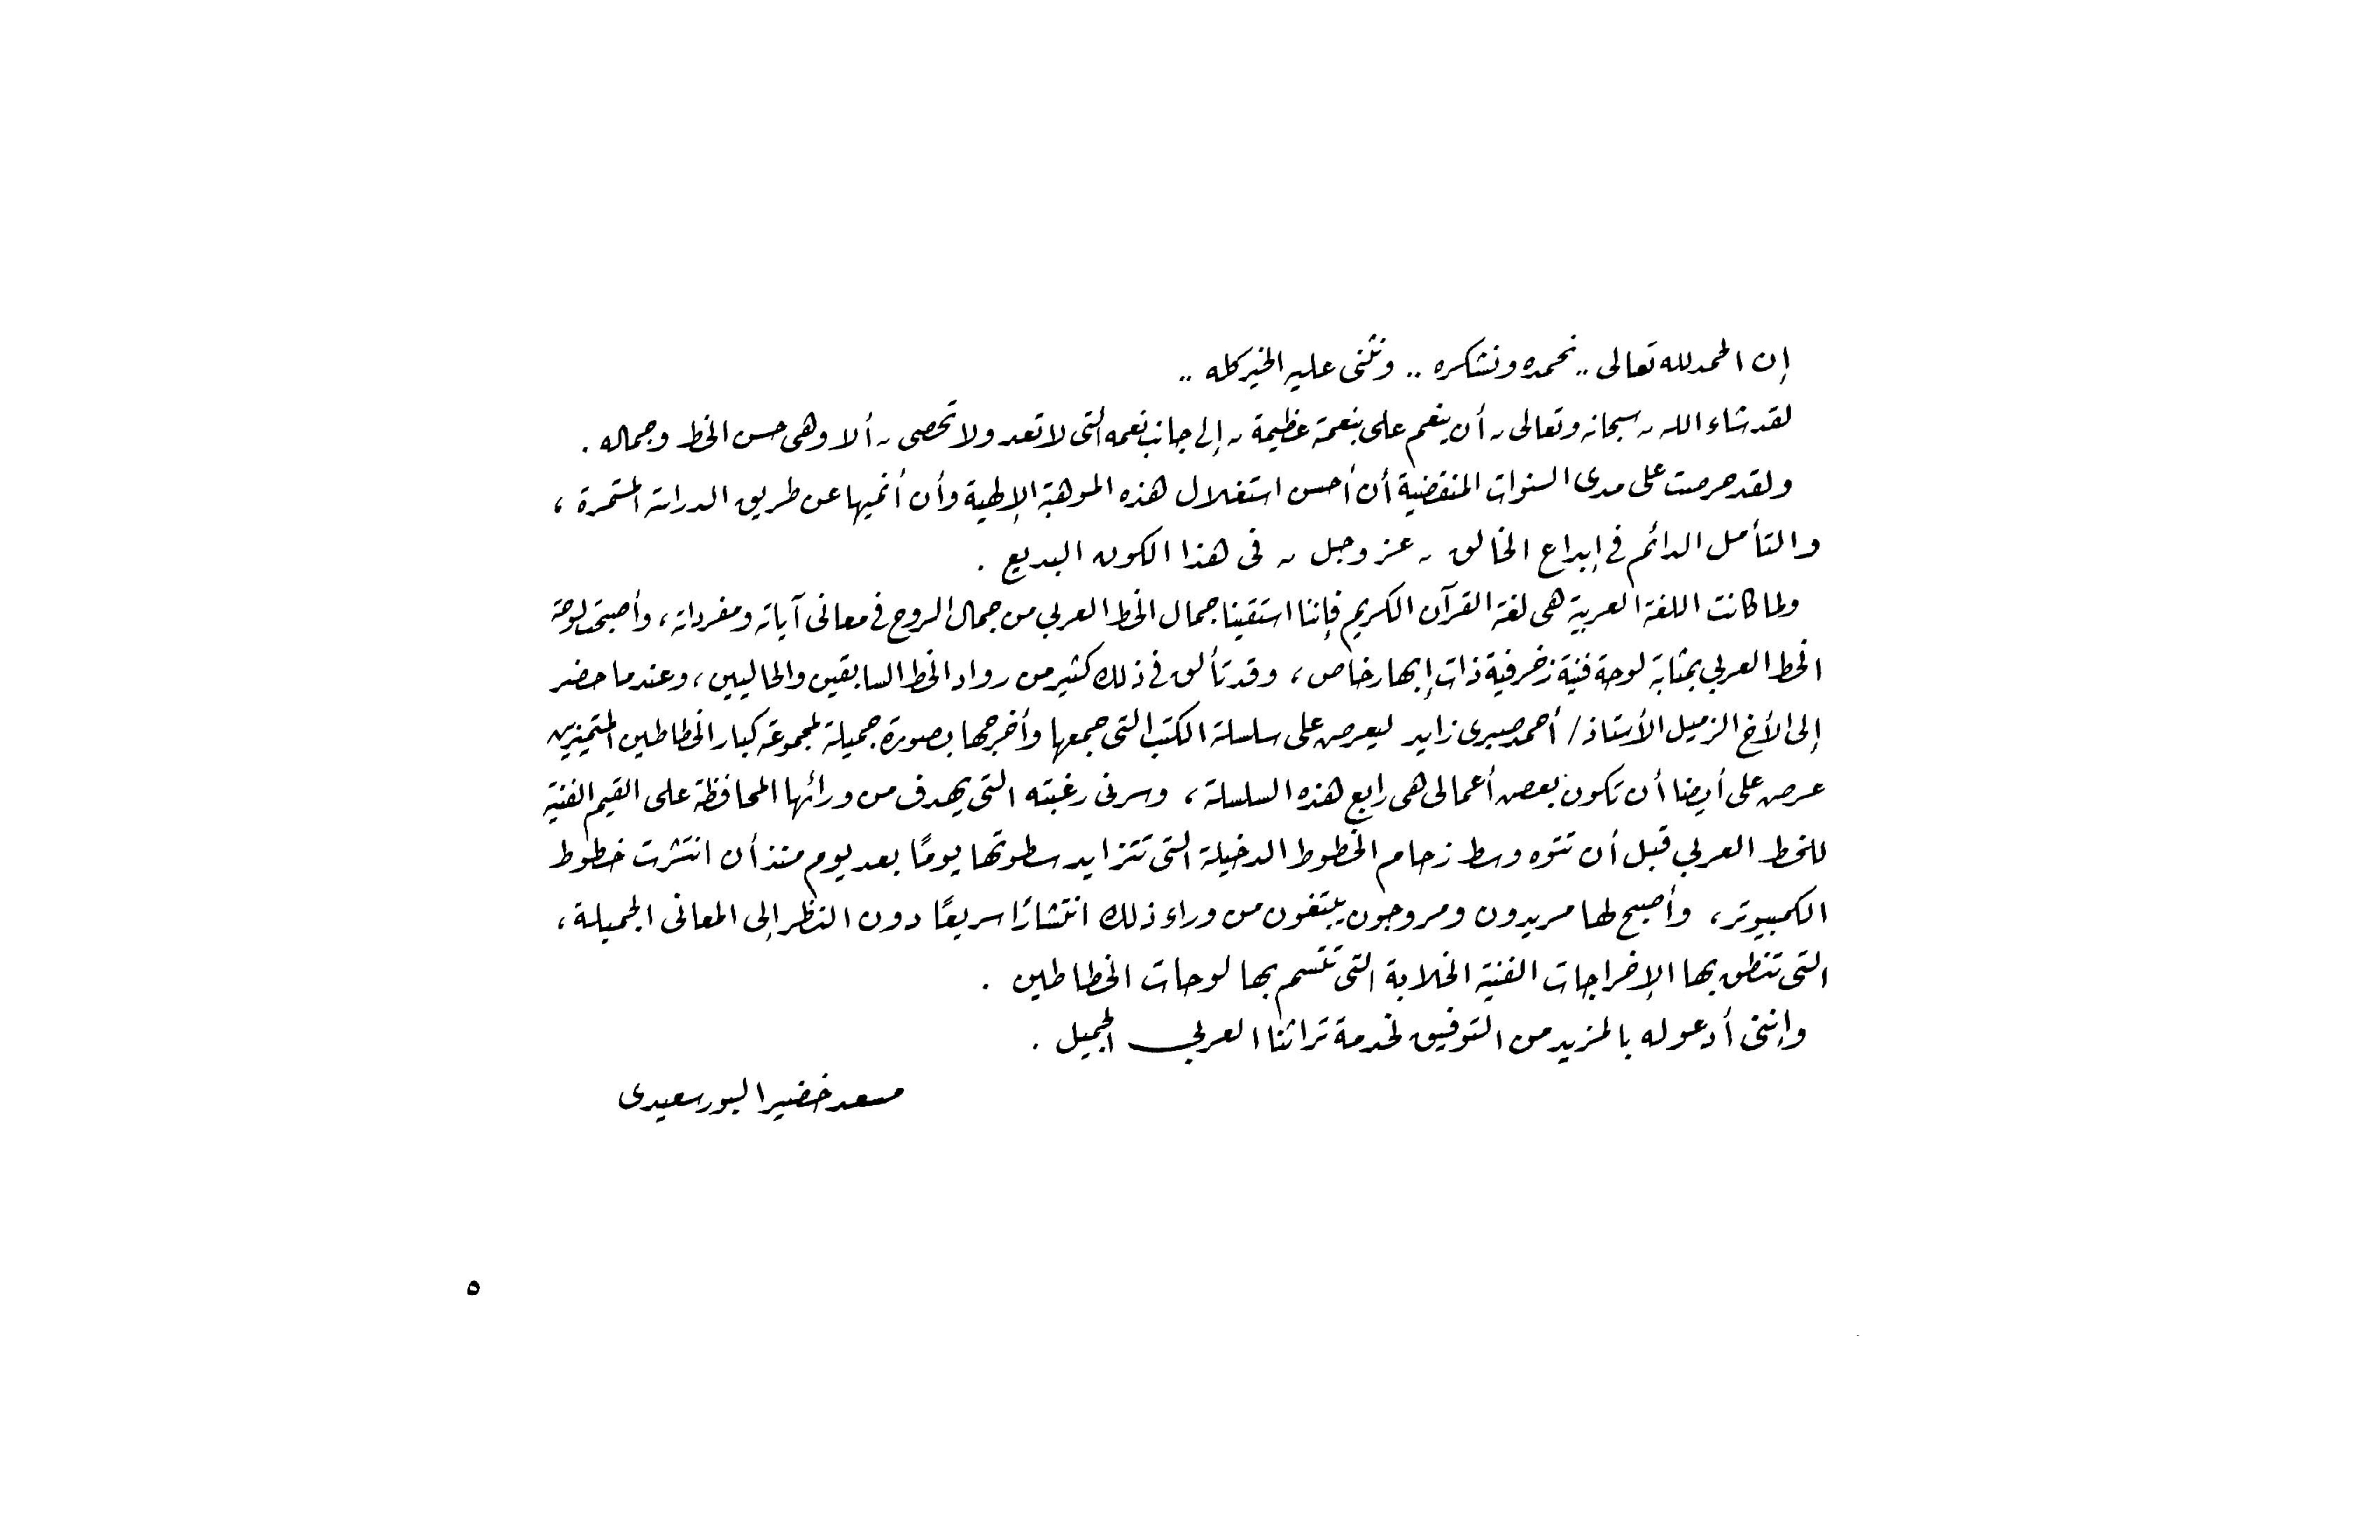 إن الحمد لله تعالى .. نحمده ونشكره .. ونثنى عليه الخير كله ..
لقد شاء الله - سبحانه وتعالى - أن ينعم على بنعمة عظيمة - إلى جانب نعمه التى لا تعد ولا تحصى - ألا وهى حسن الخط وجماله .
ولقد حرصت على مدى السنوات المنقضية أن أحسن استغلال هذه الموهبة الإلهية وأن أنميها عن طريق الدراسة المستمرة ،
والتأمل الدائم فى إبداع الخالق - عز وجل - فى هذا الكون البديع .
ولما كانت اللغة العربية هى لغة القرآن الكريم فإننا استقينا جمال الخط العربى من جمال الروح فى معانى آياته ومفرداته ، وأصبحت لوحة
الخط العربى بمثابة لوحة فنية زخرفية ذات إبهار خاص ، وقد تألق فى ذلك كثير من رواد الخط السابقين والحاليين ، وعندما حضر
إلى الأخ الزميل الأستاذ / أحمد صبرى زايد ليعرض على سلسلة الكتب التى جمعها وأخرجها بصورة جميلة لمجموعة كبار الخطاطين المتميزين
عرض على أيضا أن تكون بعض أعمالى هى رابع هذه السلسلة ، وسرنى رغبته التى يهدف من ورائها المحافظة على القيم الفنية
للخط العربى قبل أن تتوه وسط زحام الخطوط الدخيلة التى تتزايد سطوتها يومًا بعد يوم منذ أن انتشرت خطوط
الكمبيوتر ، وأصبح لها مريدون ومروجون يبتغون من وراء ذلك انتشارًا سريعًا دون النظر إلى المعانى الجميلة ،
التى تنطق بها الإخراجات الفنية الخلابة التى تتسم بها لوحات الخطاطين .
وإننى أدعو له بالمزيد من التوفيق لخدمة تراثنا العربى الجميل .
مسعد خضير البورسعيدى
٥